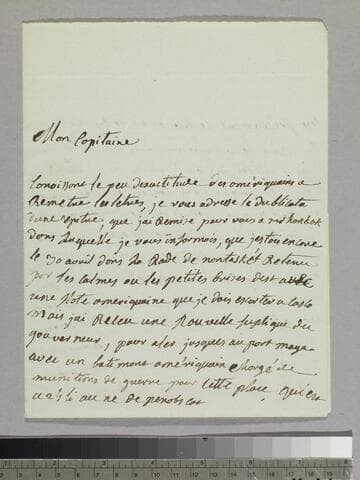 Mon Capitaine
Conoissant le peu dexactitude des ameriquains a
Remetre les letres, je vous adresse le dublicata
dune epitre, que jai Remise pour vous a
dans laquelle je vous informois, que jestois encore
le 30 avril dans la Rade de nantasket Retenu
par les calmes ou les petites brises dest avec
une flote ameriquaine que je dois escorter a casco
mais jai Recu une Nouvelle suplique du
gouverneur, pour aler jusques au port
avec un batiment amériquain chargé de
munitions de guerre pour cette place, qui est
a 25 li au ne de penobscot